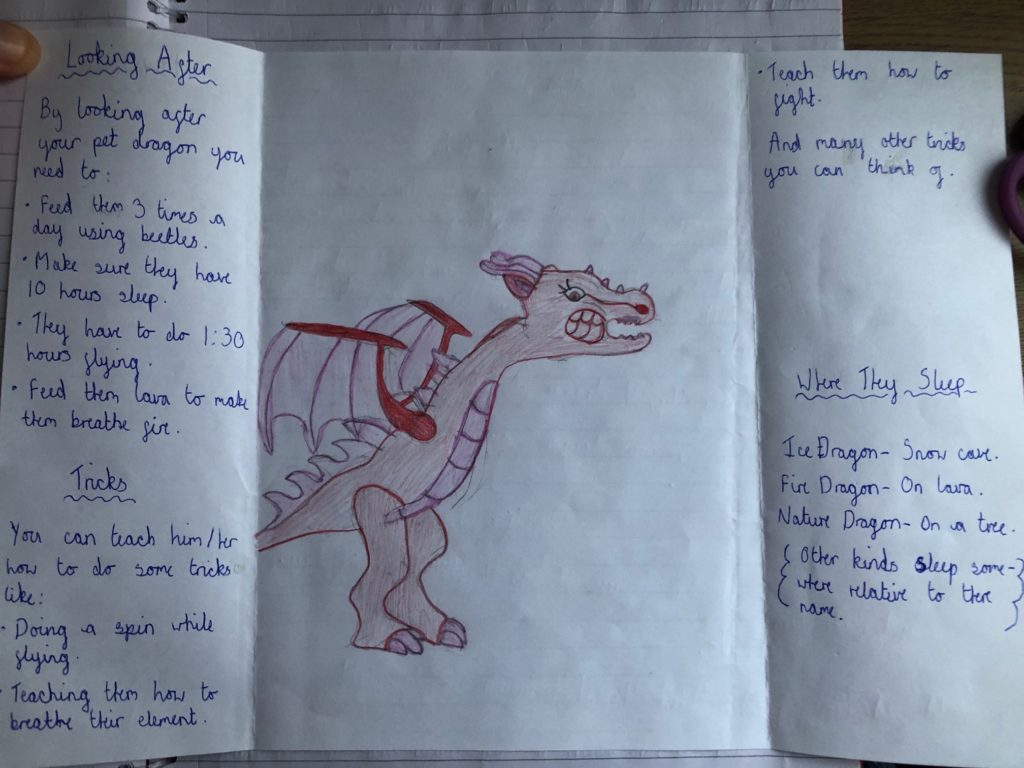 Looking After
By looking after
your pet dragon you
need to:
• Feed them 3 times a
day using beetles.
• Make sure they have
10 hours sleep.
• They have to do 1:30
hours flying.
• Feed them lava to make
them breathe fire.
Tricks
You can teach him/her
how to do some tricks
like:
• Doing a spin while
flying.
• Teaching them how to
breathe their element.
• Teach them how to
fight.
And many other tricks
you can think of.
Where They Sleep
Ice Dragon- Snow cave.
Fire Dragon- On lava.
Nature Dragon- On a tree.
{Other kinds sleep some-}
{where relative to there}
{name.}